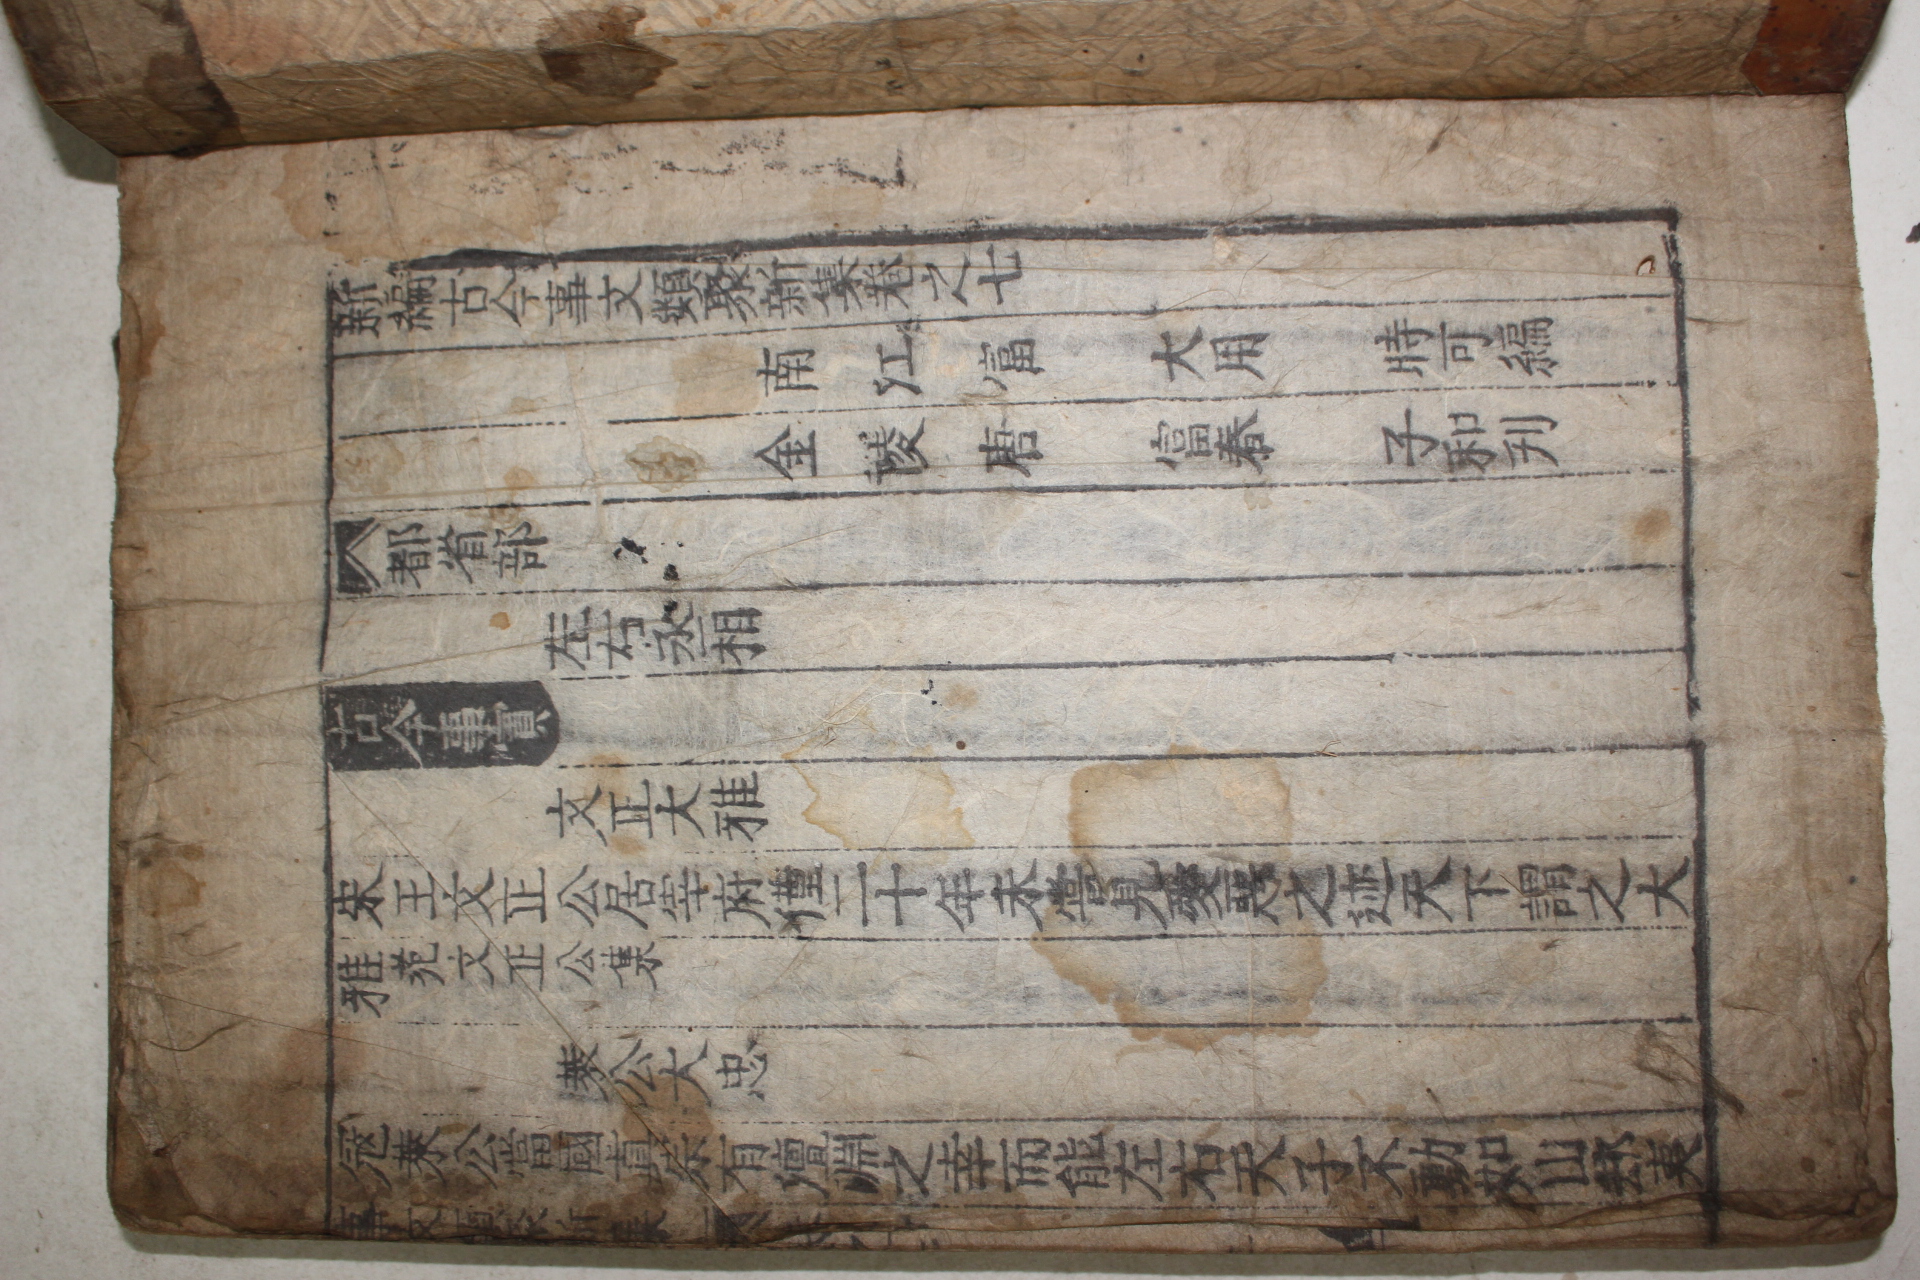 新編古今事文類聚新集卷之七
南江富大用時可編
金陵唐富春子和刋
都省部
左右丞相
古今事實
文正大雅
宋王文正公居宰府僅二十年未嘗見愛惡之迹天下謂之大
雅范文正公集
萊公大忠
寇萊公當國真宗有澶淵之幸而能左右天子不動如山却戎
事文類聚新集